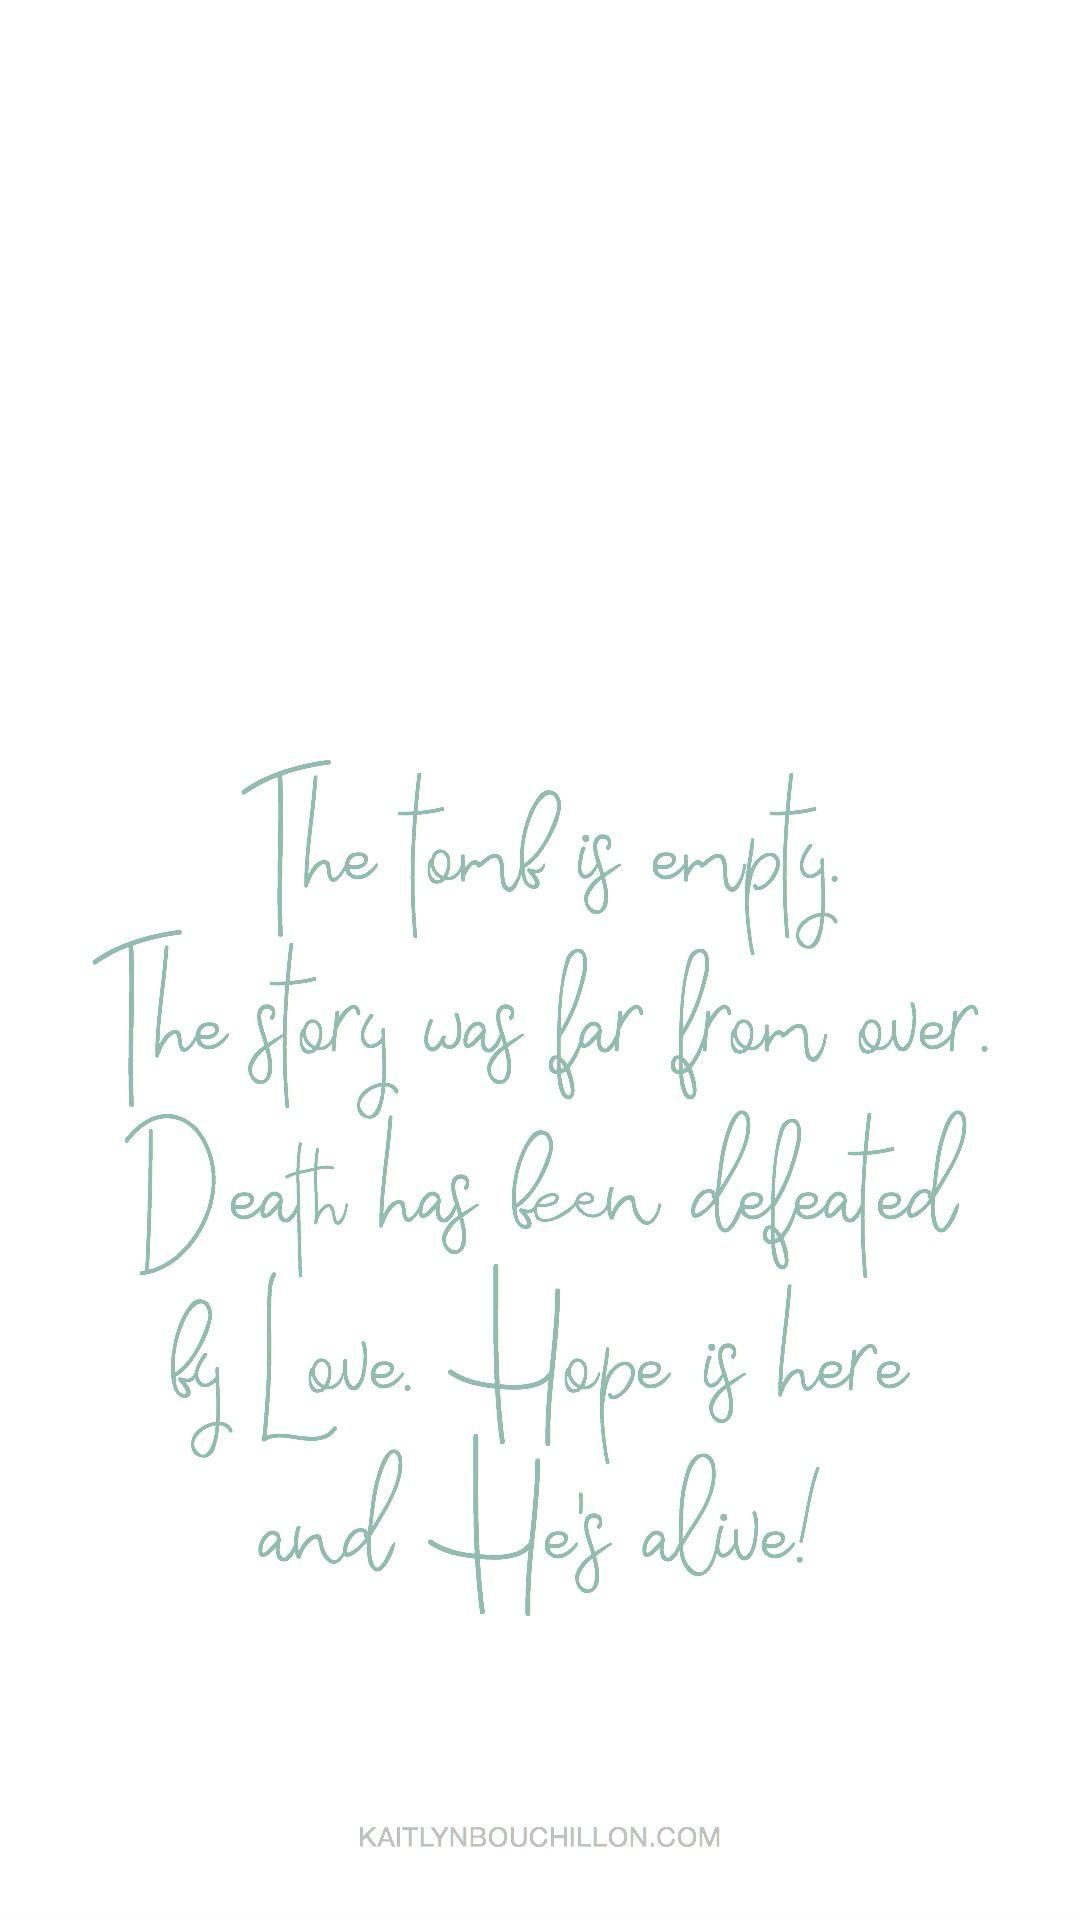 The tomb is empty.
The story was far from over.
Death has been defeated
by Love. Hope is here
and He's alive!
KAITLYNBOUCHILLON.COM